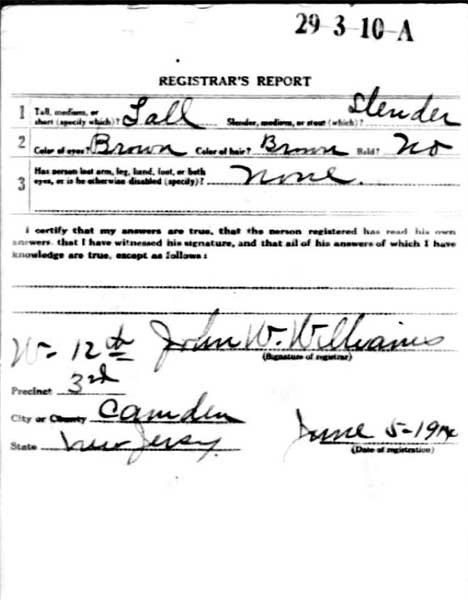 29-3-10-A
REGISTRAR'S REPORT
1 Tall, medium, or short (specify which)? Tall Slender, medium, or stout (which)? Slender
2 Color of eyes? Brown Color of hair? Brown Bald? No
3 Has person lost arm, leg, hand, foot, or both eyes, or is he otherwise disabled (specify)? None.
I certify that my answers are true, that the person registered has read his own
answers, that I have witnessed his signature, and that all of his answers of which I have
knowledge are true, except as follows:
W- 12th John W. Williams
(Signature of registrar)
Precinct 3rd
City or County Camden
State New Jersey
June 5-19
(Date of registration)